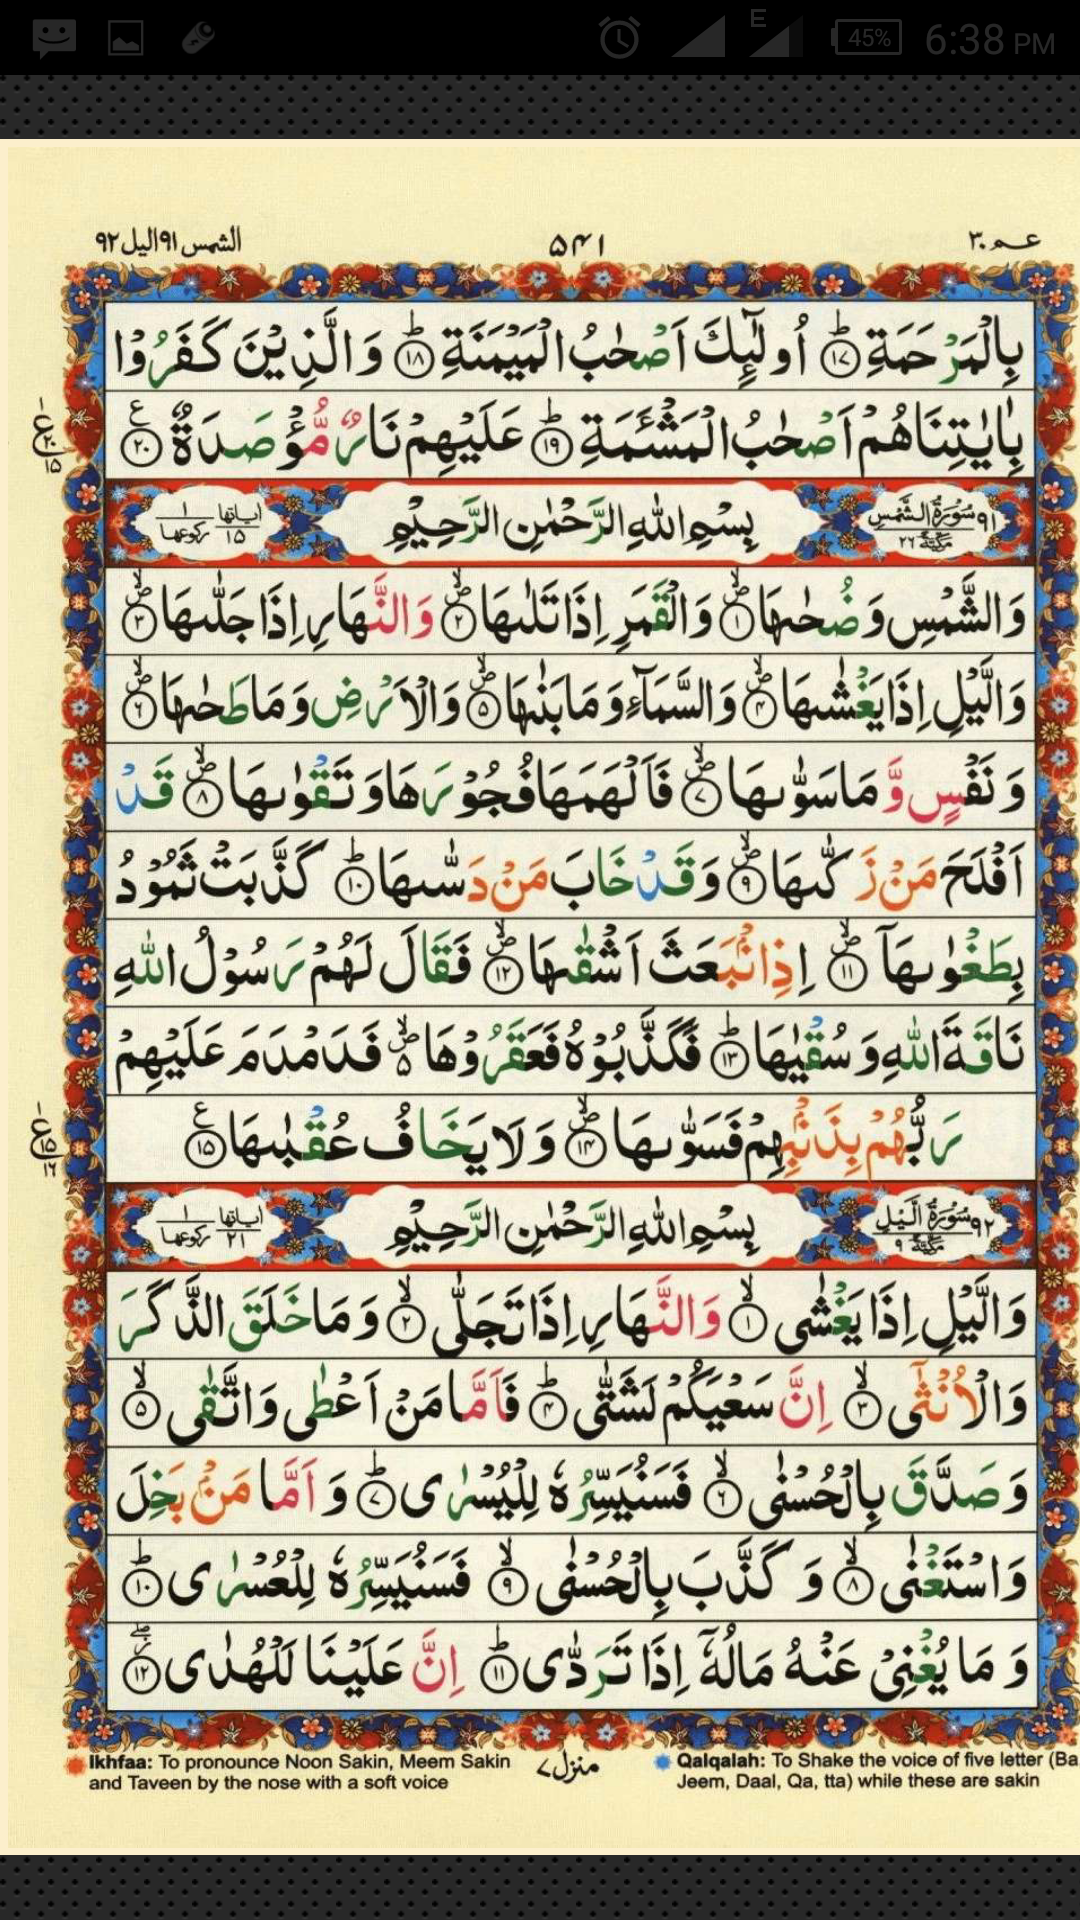 45% 6:38 PM
عـم ٣٠ ٥٤١ الشمس ٩١ اليل ٩٢
بِالْمَرْحَمَةِ ؕ‏﴿۱۷﴾ اُولٰٓئِكَ اَصْحٰبُ الْمَيْمَنَةِ ؕ‏﴿۱۸﴾ وَالَّذِيْنَ كَفَرُوْا
بِاٰيٰتِنَا هُمْ اَصْحٰبُ الْمَشْـَٔمَةِ ؕ‏﴿۱۹﴾ عَلَيْهِمْ نَارٌ مُّؤْصَدَةٌ ‏﴿۲۰﴾ ع
ع ١ ٢٠ ١٥
٩١ سُوْرَةُ الشَّمْسِ مَكِّيَّةٌ ٢٦ بِسْمِ اللّٰهِ الرَّحْمٰنِ الرَّحِيْمِ اٰيَاتُهَا ١٥ رُكُوْعُهَا ١
وَالشَّمْسِ وَضُحٰىهَا ۙ‏ۖ﴿۱﴾ وَالْقَمَرِ اِذَا تَلٰىهَا ۙ‏ۖ﴿۲﴾ وَالنَّهَارِ اِذَا جَلّٰىهَا ۙ‏ۖ﴿۳﴾
وَالَّيْلِ اِذَا يَغْشٰىهَا ۙ‏ۖ﴿۴﴾ وَالسَّمَآءِ وَمَا بَنٰىهَا ۙ‏ۖ﴿۵﴾ وَالْاَرْضِ وَمَا طَحٰىهَا ۙ‏ۖ﴿۶﴾
وَنَفْسٍ وَّمَا سَوّٰىهَا ۙ‏ۖ﴿۷﴾ فَاَلْهَمَهَا فُجُوْرَهَا وَتَقْوٰىهَا ۙ‏ۖ﴿۸﴾ قَدْ
اَفْلَحَ مَنْ زَكّٰىهَا ۙ‏ۖ﴿۹﴾ وَقَدْ خَابَ مَنْ دَسّٰىهَا ؕ‏﴿۱۰﴾ كَذَّبَتْ ثَمُوْدُ
بِطَغْوٰىهَآ ۙ‏ۖ﴿۱۱﴾ اِذِ انْۢبَعَثَ اَشْقٰىهَا ۙ‏ۖ﴿۱۲﴾ فَقَالَ لَهُمْ رَسُوْلُ اللّٰهِ
نَاقَةَ اللّٰهِ وَسُقْيٰهَا ؕ‏﴿۱۳﴾ فَكَذَّبُوْهُ فَعَقَرُوْهَا ۙ۵ فَدَمْدَمَ عَلَيْهِمْ
رَبُّهُمْ بِذَنْۢبِهِمْ فَسَوّٰىهَا ۙ‏ۖ﴿۱۴﴾ وَلَا يَخَافُ عُقْبٰىهَا ‏﴿۱۵﴾ ع
ع ١ ١٥ ١٦
٩٢ سُوْرَةُ الَّيْلِ مَكِّيَّةٌ ٩ بِسْمِ اللّٰهِ الرَّحْمٰنِ الرَّحِيْمِ اٰيَاتُهَا ٢١ رُكُوْعُهَا ١
وَالَّيْلِ اِذَا يَغْشٰى ۙ‏﴿۱﴾ وَالنَّهَارِ اِذَا تَجَلّٰى ۙ‏﴿۲﴾ وَمَا خَلَقَ الذَّكَرَ
وَالْاُنْثٰٓى ۙ‏﴿۳﴾ اِنَّ سَعْيَكُمْ لَشَتّٰى ؕ‏﴿۴﴾ فَاَمَّا مَنْ اَعْطٰى وَاتَّقٰى ۙ‏﴿۵﴾
وَصَدَّقَ بِالْحُسْنٰى ۙ‏﴿۶﴾ فَسَنُيَسِّرُهٗ لِلْيُسْرٰى ؕ‏﴿۷﴾ وَاَمَّا مَنْۢ بَخِلَ
وَاسْتَغْنٰى ۙ‏﴿۸﴾ وَكَذَّبَ بِالْحُسْنٰى ۙ‏﴿۹﴾ فَسَنُيَسِّرُهٗ لِلْعُسْرٰى ؕ‏﴿۱۰﴾
وَمَا يُغْنِىْ عَنْهُ مَالُهٗٓ اِذَا تَرَدّٰى ؕ‏﴿۱۱﴾ اِنَّ عَلَيْنَا لَلْهُدٰى ۖ‏﴿۱۲﴾
Ikhfaa: To pronounce Noon Sakin, Meem Sakin
and Taveen by the nose with a soft voice
منزل ٧
Qalqalah: To Shake the voice of five letter (Ba
Jeem, Daal, Qa, tta) while these are sakin